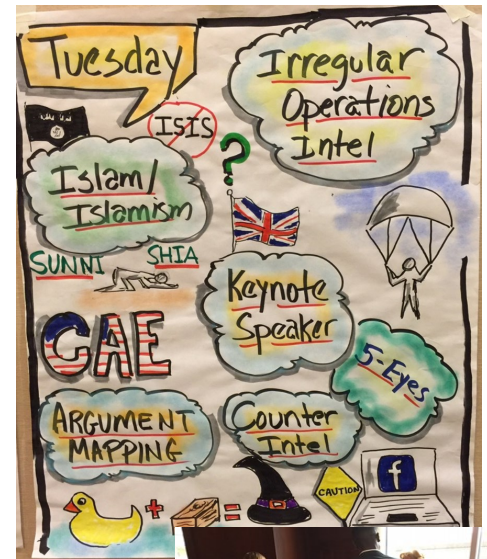 Tuesday
Irregular
Operations
Intel
ISIS
?
Islam/
Islamism
SUNNI
SHIA
Keynote
Speaker
CAE
5-Eyes
ARGUMENT
MAPPING
Counter
Intel
+
=
CAUTION
f